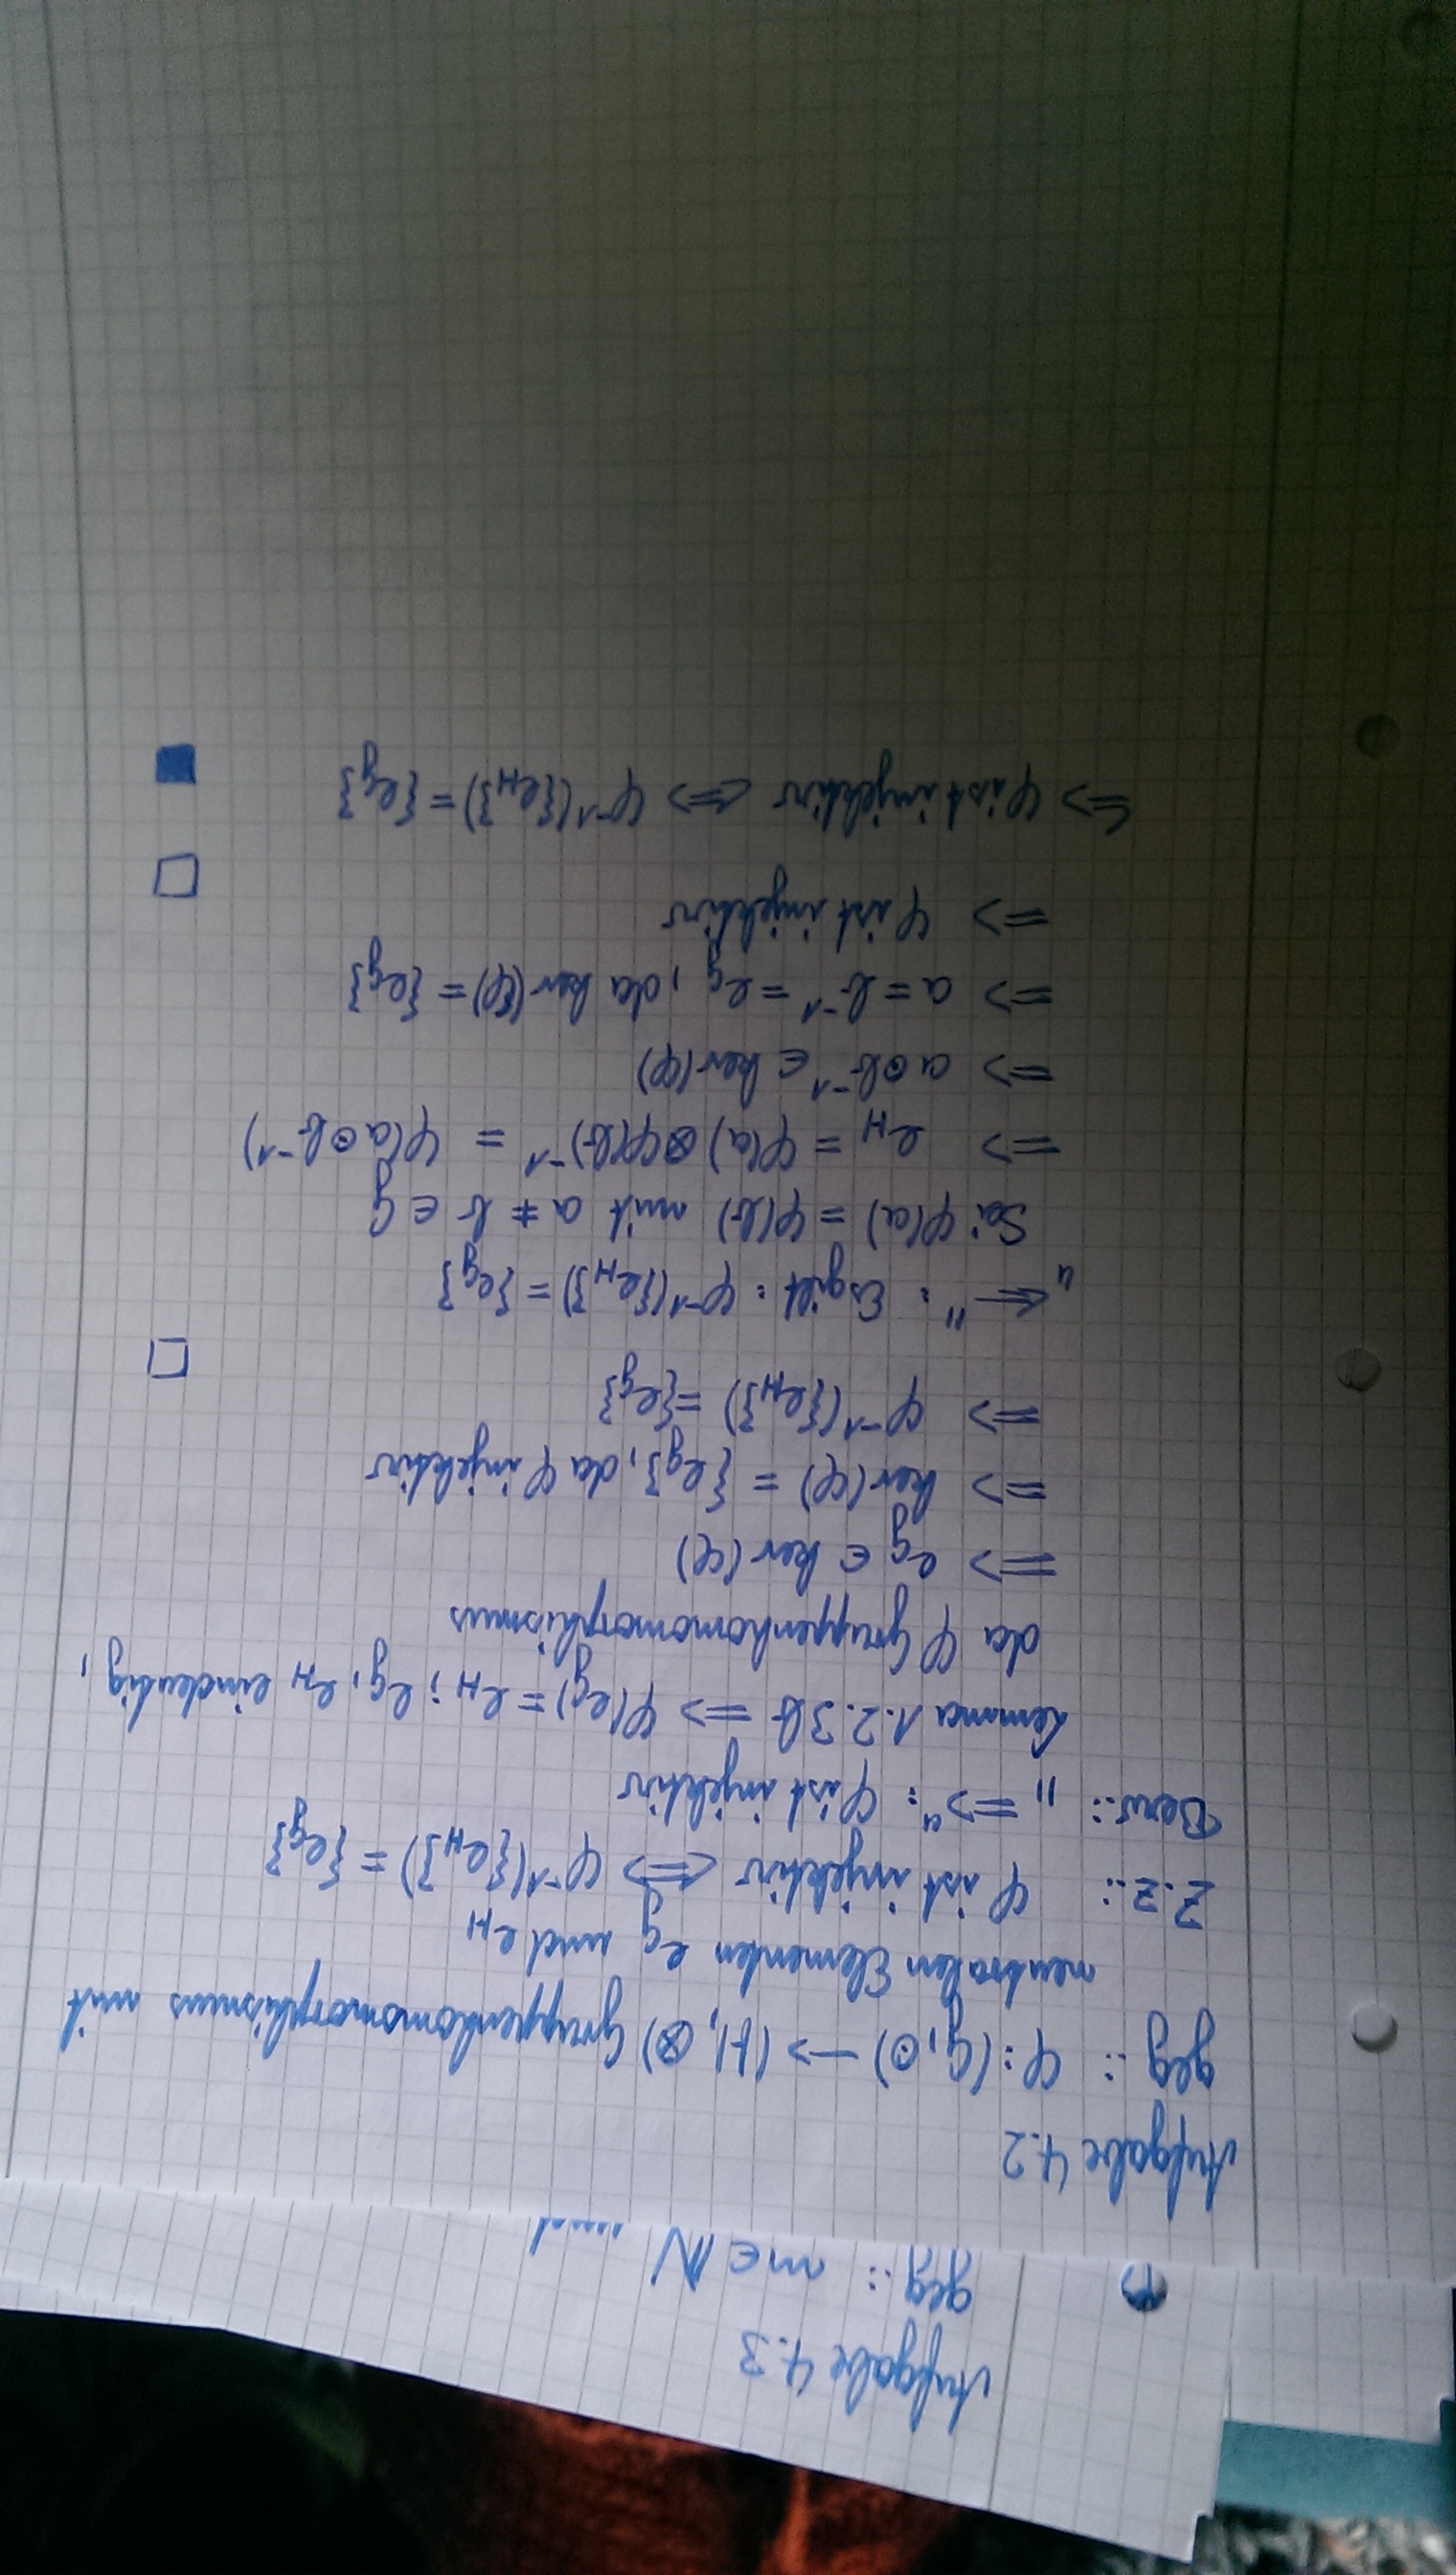 Aufgabe 4.3
geg.: m ∈ ℕ
Aufgabe 4.2
geg.: φ: (G, ⊙) —> (H, ⊗) Gruppenhomomorphismus mit
neutralen Elementen e_G und e_H
z.z.: φ ist injektiv <=> φ⁻¹({e_H}) = {e_G}
Bew.: "=>": φ ist injektiv
Lemma 1.2.3b => φ(e_G) = e_H; e_G, e_H eindeutig,
da φ Gruppenhomomorphismus
=> e_G ∈ ker(φ)
=> ker(φ) = {e_G}, da φ injektiv
=> φ⁻¹({e_H}) = {e_G}
□
"<=": Es gilt: φ⁻¹({e_H}) = {e_G}
Sei φ(a) = φ(b) mit a ≠ b ∈ G
=> e_H = φ(a) ⊗ φ(b)⁻¹ = φ(a ⊙ b⁻¹)
=> a ⊙ b⁻¹ ∈ ker(φ)
=> a = b⁻¹ = e_G, da ker(φ) = {e_G}
=> φ ist injektiv
□
=> φ ist injektiv <=> φ⁻¹({e_H}) = {e_G}
■